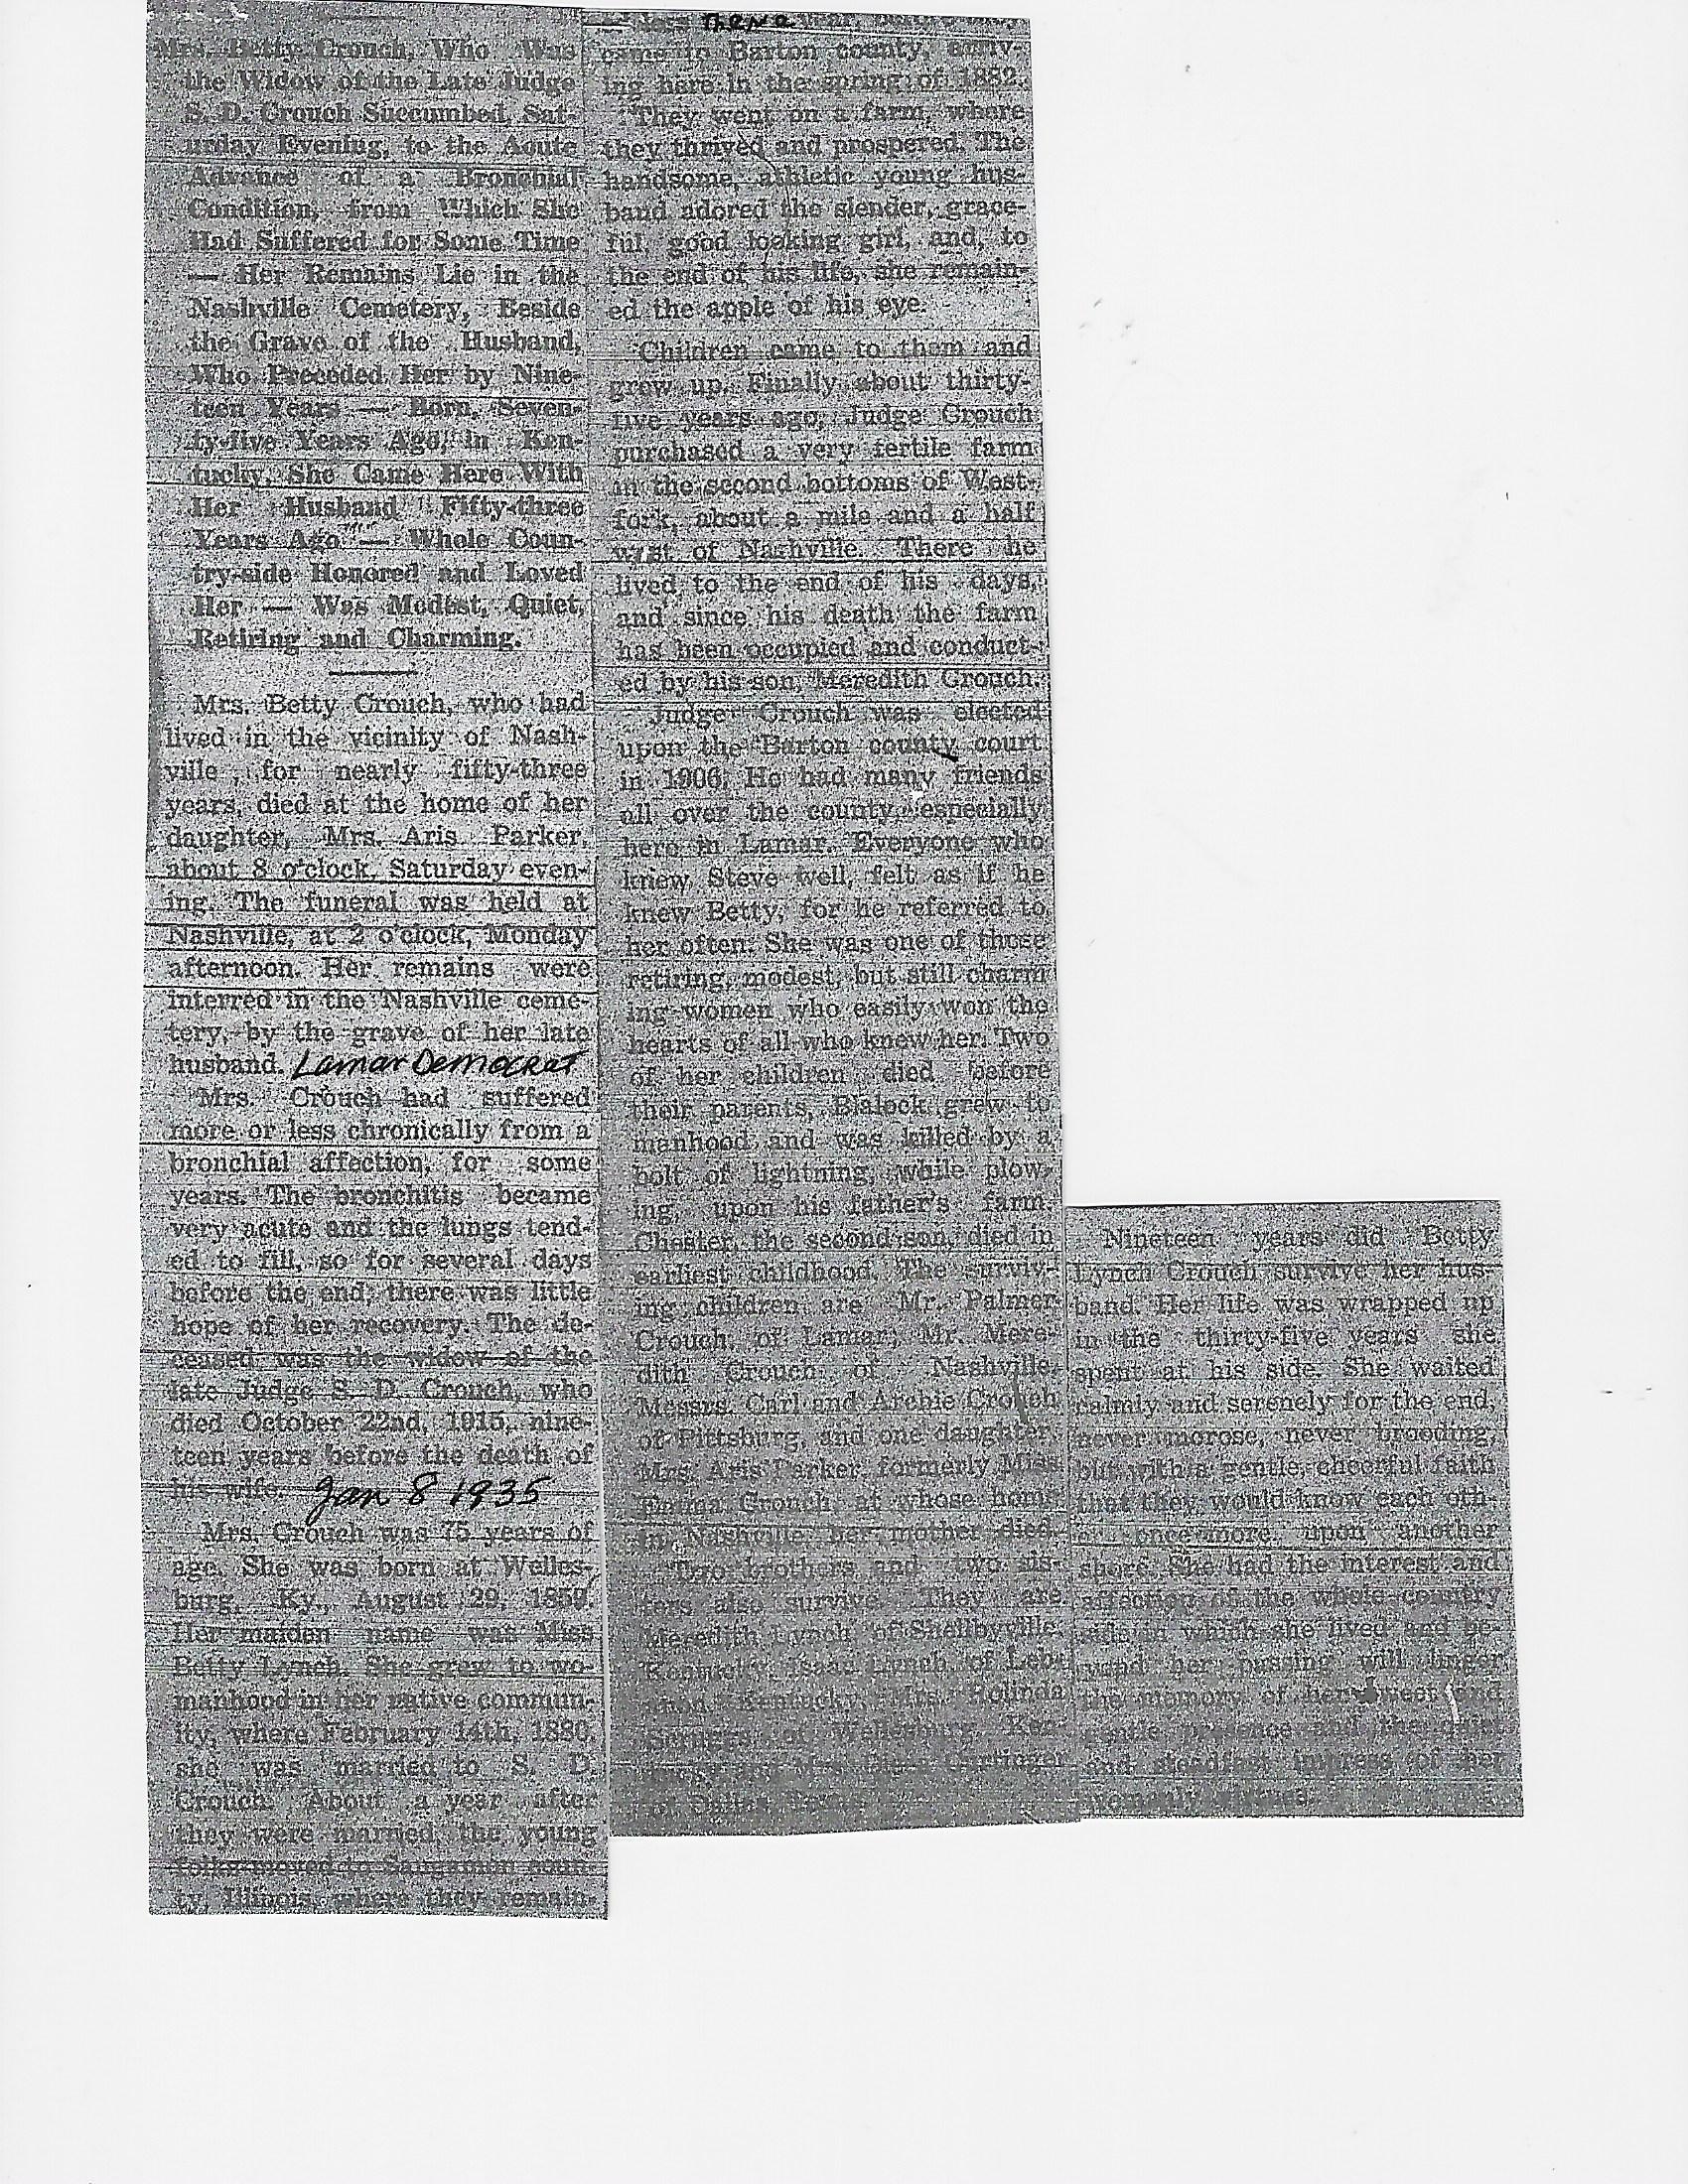 Mrs. Betty Crouch, Who Was
the Widow of the Late Judge
S. D. Crouch Succumbed, Sat-
urday Evening, to the Acute
Advance of a Bronchial
Condition, from Which She
Had Suffered for Some Time
— Her Remains Lie in the
Nashville Cemetery, Beside
the Grave of the Husband,
Who Preceded Her by Nine-
teen Years — Born, Seven-
ty-five Years Ago, in Ken-
tucky, She Came Here With
Her Husband Fifty-three
Years Ago — Whole Coun-
try-side Honored and Loved
Her — Was Modest, Quiet,
Retiring and Charming.
Mrs. Betty Crouch, who had
lived in the vicinity of Nash-
ville, for nearly fifty-three
years, died at the home of her
daughter, Mrs. Aris Parker,
about 8 o'clock, Saturday even-
ing. The funeral was held at
Nashville, at 2 o'clock, Monday
afternoon. Her remains were
interred in the Nashville ceme-
tery, by the grave of her late
husband. Lamar Democrat
Mrs. Crouch had suffered
more or less chronically from a
bronchial affection, for some
years. The bronchitis became
very acute and the lungs tend-
ed to fill, so for several days
before the end, there was little
hope of her recovery. The de-
ceased was the widow of the
late Judge S. D. Crouch, who
died October 22nd, 1915, nine-
teen years before the death of
his wife. Jan 8 1935
Mrs. Crouch was 75 years of
age. She was born at Welles-
burg, Ky., August 29, 1859.
Her maiden name was Miss
Betty Lynch. She grew to wo-
manhood in her native commun-
ity, where February 14th, 1880,
she was married to S. D.
Crouch. About a year after
they were married, the young
folks moved to Sangamon coun-
ty, Illinois, where they remain-
there
came to Barton county, arriv-
ing here in the spring of 1882.
They went on a farm, where
they thrived and prospered. The
handsome, athletic young hus-
band adored the slender, grace-
ful, good looking girl, and, to
the end of his life, she remain-
ed the apple of his eye.
Children came to them and
grew up. Finally about thirty-
five years ago, Judge Crouch
purchased a very fertile farm
in the second bottoms of West-
fork, about a mile and a half
west of Nashville. There he
lived to the end of his days,
and since his death the farm
has been occupied and conduct-
ed by his son, Meredith Crouch.
Judge Crouch was elected
upon the Barton county court
in 1906. He had many friends
all over the county, especially
here in Lamar. Everyone who
knew Steve well, felt as if he
knew Betty, for he referred to
her often. She was one of those
retiring, modest, but still charm
ing women who easily won the
hearts of all who knew her. Two
of her children died before
their parents. Blalock grew to
manhood and was killed by a
bolt of lightning, while plow-
ing, upon his father's farm.
Chester, the second son, died in
earliest childhood. The surviv-
ing children are Mr. Palmer
Crouch, of Lamar; Mr. Mere-
dith Crouch of Nashville,
Messrs. Carl and Archie Crouch
of Pittsburg, and one daughter,
Mrs. Aris Parker, formerly Miss
Crouch, at whose home
in Nashville her mother died.
Two brothers and two sis-
ters also survive. They are
Meredith Lynch of Shelbyville,
Kentucky, Isaac Lynch, of Leb-
anon, Kentucky, Mrs.
of
Nineteen years did Betty
Lynch Crouch survive her hus-
band. Her life was wrapped up
in the thirty-five years she
spent at his side. She waited
calmly and serenely for the end,
never morose, never brooding,
but with a gentle, cheerful faith
that they would know each oth-
er once more upon another
shore. She had the interest and
affection of the whole country
side in which she lived and be-
yond her passing will linger
the memory of her sweet and
gentle presence and the quiet
and steadfast impress of her